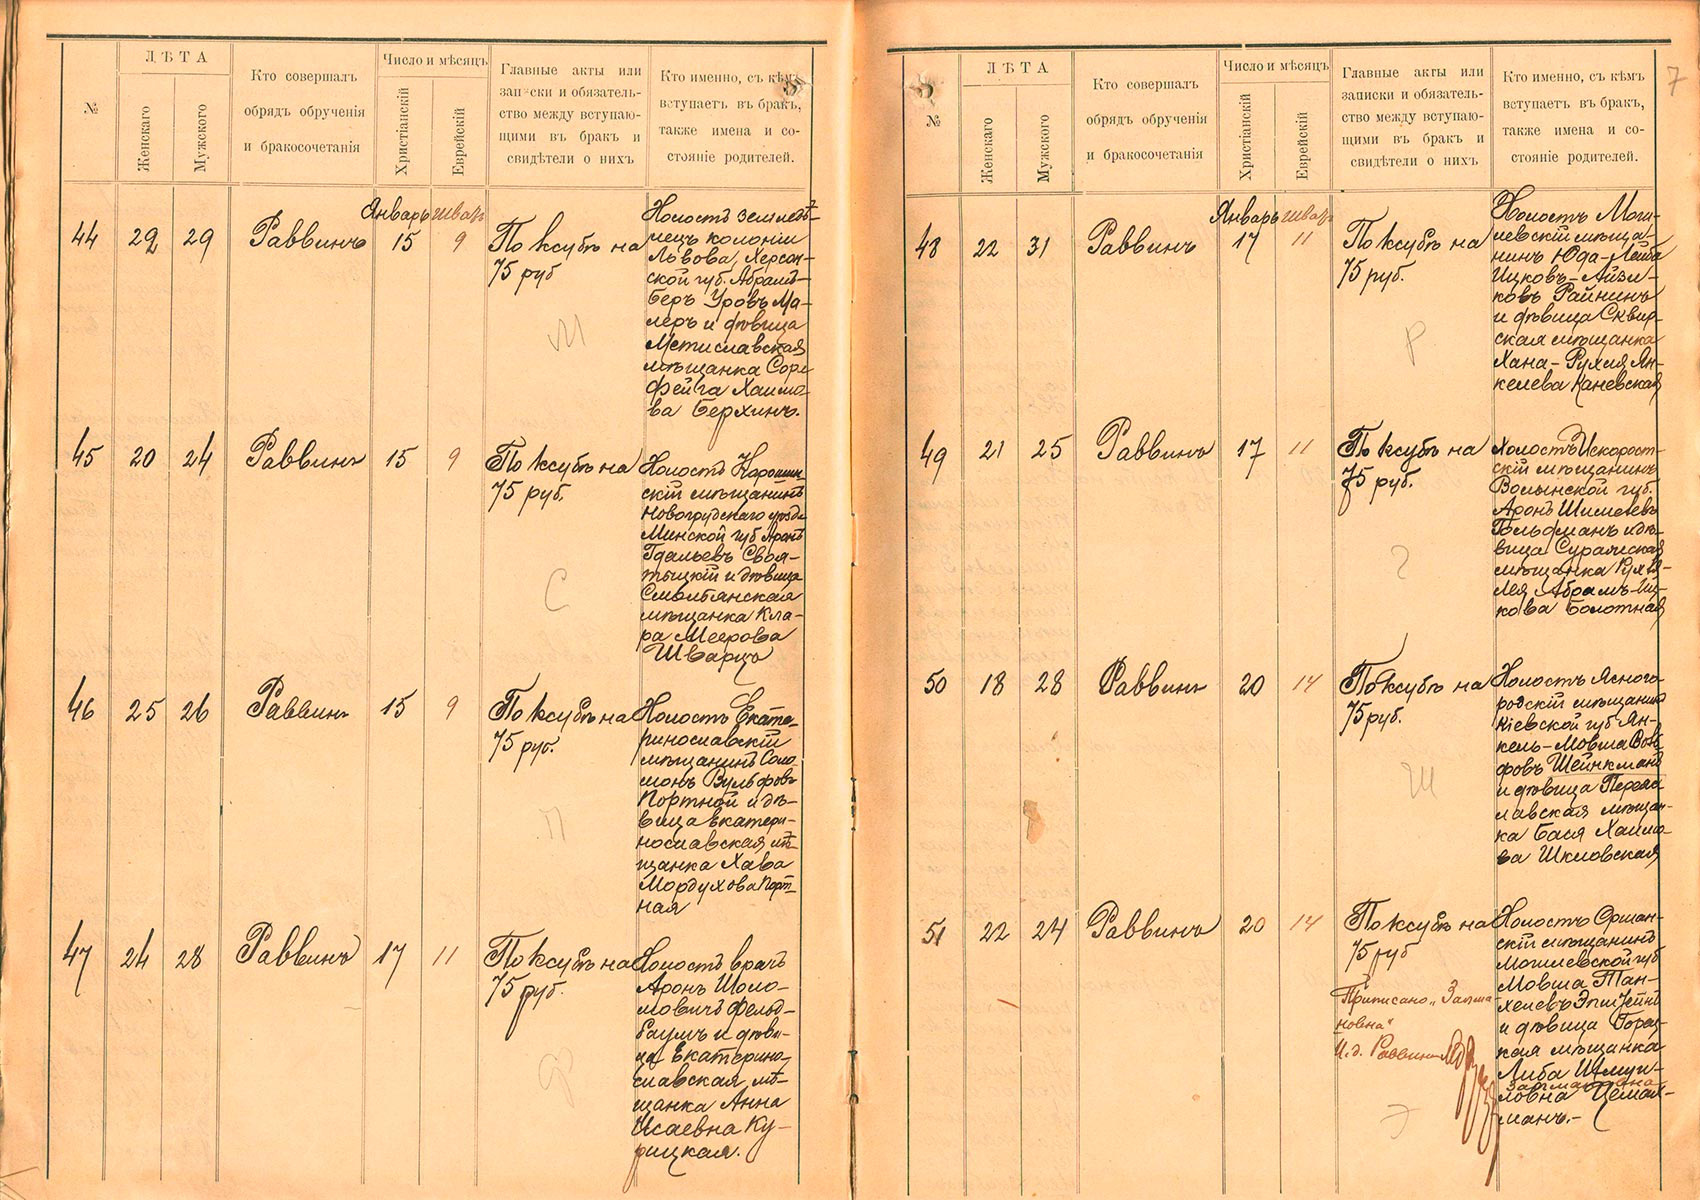 №
ЛѢТА
Женскаго
Мужского
Кто совершалъ
обрядъ обрученія
и бракосочетанія
Число и мѣсяцъ
Христіанскій
Еврейскій
Главные акты или
записки и обязатель-
ство между вступаю-
щими въ бракъ и
свидѣтели о нихъ
Кто именно, съ кѣмъ
вступаетъ въ бракъ,
также имена и со-
стояніе родителей.
Январь
44
22
29
Раввинъ
15
9
По ксубѣ на
75 руб
Холостъ земледѣ-
лецъ колоніи
Львова, Херсон-
ской губ. Абрамъ-
Беръ Уровъ Ма-
леръ и дѣвица
Мстиславская
мѣщанка Сора
Фейга Хаимо-
ва Берхинъ.
М
45
20
24
Раввинъ
15
9
По ксубѣ на
75 руб.
Холостъ
скій мѣщанинъ
Новогрудскаго уѣзда
Минской губ Аронъ
Гдальевъ Своя-
тыцкій и дѣвица
Смолянская
мѣщанка Кла-
ра Меерова
Шварцъ
С
46
25
26
Раввинъ
15
9
По ксубѣ на
75 руб.
Холостъ Екате-
ринославскій
мѣщанинъ Соло
монъ Вульфовъ
Портной и дѣ-
вица Екатери-
нославская мѣ-
щанка Хава
Мордухова Порт-
ная
П
47
24
28
Раввинъ
17
11
По ксубѣ на
75 руб.
Холостъ врачъ
Аронъ Шоло-
мовичъ Фельд-
баумъ и дѣви-
ца Екатерино-
славская мѣ-
щанка Анна
Исаевна Ку-
рицкая.
Ф
7
№
ЛѢТА
Женскаго
Мужского
Кто совершалъ
обрядъ обрученія
и бракосочетанія
Число и мѣсяцъ
Христіанскій
Еврейскій
Главные акты или
записки и обязатель-
ство между вступаю-
щими въ бракъ и
свидѣтели о нихъ
Кто именно, съ кѣмъ
вступаетъ въ бракъ,
также имена и со-
стояніе родителей.
Январь
48
22
31
Раввинъ
17
11
По ксубѣ на
75 руб.
Холостъ Моги-
левскій мѣща-
нинъ Юда-Лейба
Ицковъ-Айзи-
ковъ Райнинъ
и дѣвица Сквир-
ская мѣщанка
Хана-Рухля Ян-
келева Каневская
Р
49
21
25
Раввинъ
17
11
По ксубѣ на
75 руб.
Холостъ Искорост-
скій мѣщанинъ
Волынской губ.
Аронъ Шмелевъ
Гольдманъ и дѣ-
вица Суражская
мѣщанка Рухля-
Лея Абрамъ-Иц-
кова Болотная
Г
50
18
28
Раввинъ
20
14
По ксубѣ на
75 руб.
Холостъ Ясного-
родскій мѣщанинъ
Кіевской губ Ян-
кель-Мовша Воль
фовъ Шейнкманъ
и дѣвица Переяс
лавская мѣщан-
ка Бася Хаимо
ва Шкловская
Ш
51
22
24
Раввинъ
20
14
По ксубѣ на
75 руб
Приписано „Залма-
новна"
И.д. Раввина
Холостъ Оршан-
скій мѣщанинъ
Могилевской губ
Мовша Тан-
хелевъ Эпштейнъ
и дѣвица Горец-
кая мѣщанка
Либа Шмуй-
Залмановна
ловна Цемах-
манъ.-
Э